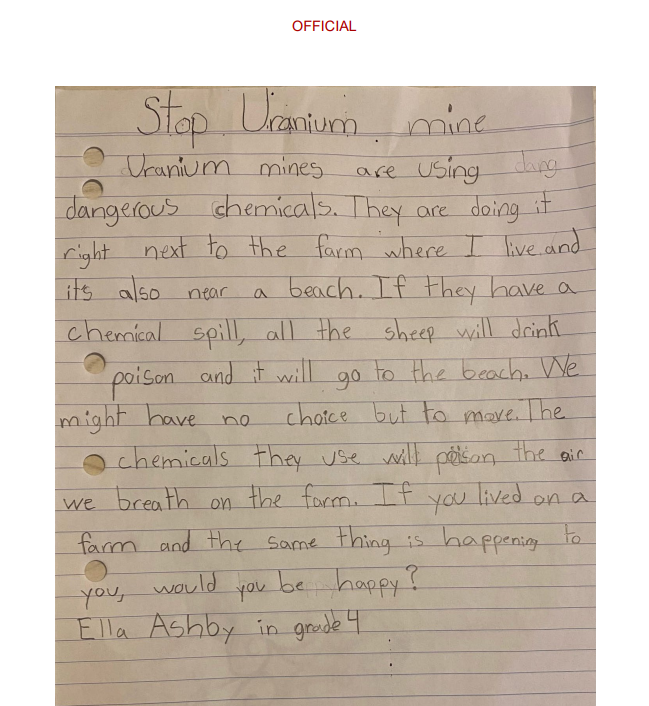 OFFICIAL
Stop Uranium mine
Uranium mines are using dang
dangerous chemicals. They are doing it
right next to the farm where I live and
its also near a beach. If they have a
chemical spill, all the sheep will drink
poison and it will go to the beach. We
might have no choice but to move. The
chemicals they use will poison the air
we breath on the farm. If you lived on a
farm and the same thing is happening to
you, would you be happy?
Ella Ashby in grade 4